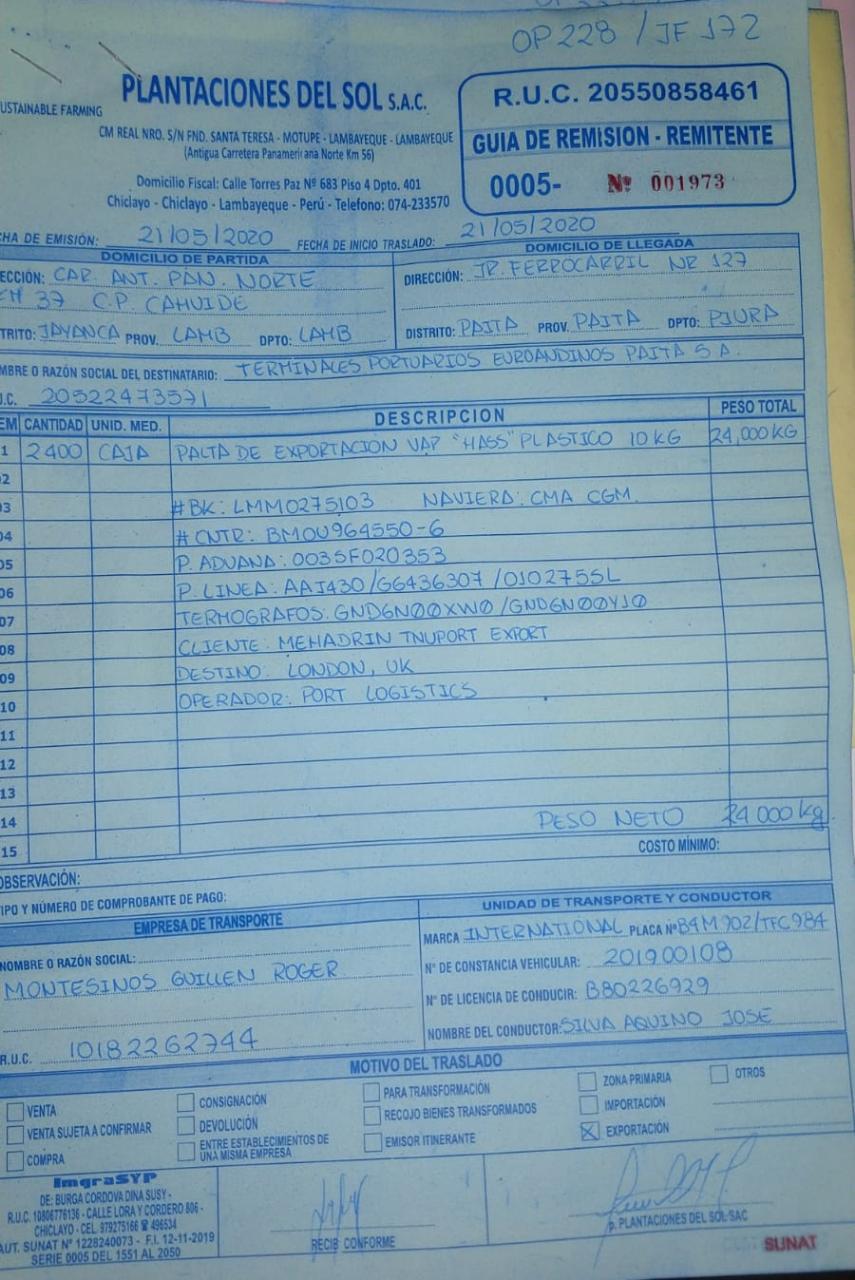 OP 228 / JF 172
USTAINABLE FARMING
PLANTACIONES DEL SOL S.A.C.
CM REAL NRO. S/N FND. SANTA TERESA - MOTUPE - LAMBAYEQUE - LAMBAYEQUE
(Antigua Carretera Panamericana Norte Km 56)
Domicilio Fiscal: Calle Torres Paz Nº 683 Piso 4 Dpto. 401
Chiclayo - Chiclayo - Lambayeque - Perú - Telefono: 074-233570
R.U.C. 20550858461
GUIA DE REMISION - REMITENTE
0005- Nº 001973
CHA DE EMISIÓN: 21/05/2020 FECHA DE INICIO TRASLADO: 21/05/2020
DOMICILIO DE PARTIDA
ECCIÓN: CAR. ANT. PAN. NORTE
KM 37 C.P. CAHUIDE
TRITO: JAYANCA PROV. LAMB DPTO: LAMB
DOMICILIO DE LLEGADA
DIRECCIÓN: JR. FERROCARRIL NR 127
DISTRITO: PAITA PROV. PAITA DPTO: PIURA
MBRE O RAZÓN SOCIAL DEL DESTINATARIO: TERMINALES PORTUARIOS EUROANDINOS PAITA S A.
U.C. 20522473571
EM CANTIDAD UNID. MED. DESCRIPCION PESO TOTAL
1 2400 CAJA PALTA DE EXPORTACION VAP "HASS" PLASTICO 10 KG 24,000 KG
02
03 # BK: LMM0275103 NAVIERA: CMA CGM.
04 # CNTR: BMOU964550-6
05 P. ADUANA: 003SF020353
06 P. LINEA: AAI430/G6436307/010275SL
07 TERMOGRAFOS: GND6N00XW0/GND6N00YJ0
08 CLIENTE: MEHADRIN TNUPORT EXPORT
09 DESTINO: LONDON, UK
10 OPERADOR: PORT LOGISTICS
11
12
13
14 PESO NETO 24 000 Kg.
15
COSTO MÍNIMO:
OBSERVACIÓN:
IPO Y NÚMERO DE COMPROBANTE DE PAGO:
EMPRESA DE TRANSPORTE
NOMBRE O RAZÓN SOCIAL:
MONTESINOS GUILLEN ROGER
R.U.C. 10182262744
UNIDAD DE TRANSPORTE Y CONDUCTOR
MARCA INTERNATIONAL PLACA Nº B4M902/TFC984
N° DE CONSTANCIA VEHICULAR: 201900108
N° DE LICENCIA DE CONDUCIR: B80226929
NOMBRE DEL CONDUCTOR: SILVA AQUINO JOSE
MOTIVO DEL TRASLADO
VENTA
VENTA SUJETA A CONFIRMAR
COMPRA
CONSIGNACIÓN
DEVOLUCIÓN
ENTRE ESTABLECIMIENTOS DE
UNA MISMA EMPRESA
PARA TRANSFORMACIÓN
RECOJO BIENES TRANSFORMADOS
EMISOR ITINERANTE
ZONA PRIMARIA
IMPORTACIÓN
EXPORTACIÓN
OTROS
ImgraSYP
DE: BURGA CORDOVA DINA SUSY -
R.U.C. 10806776136 - CALLE LORA Y CORDERO 806 -
CHICLAYO - CEL. 979275166 ☎ 496534
AUT. SUNAT N° 1228240073 - F.I. 12-11-2019
SERIE 0005 DEL 1551 AL 2050
RECIBI CONFORME
p. PLANTACIONES DEL SOL SAC
SUNAT